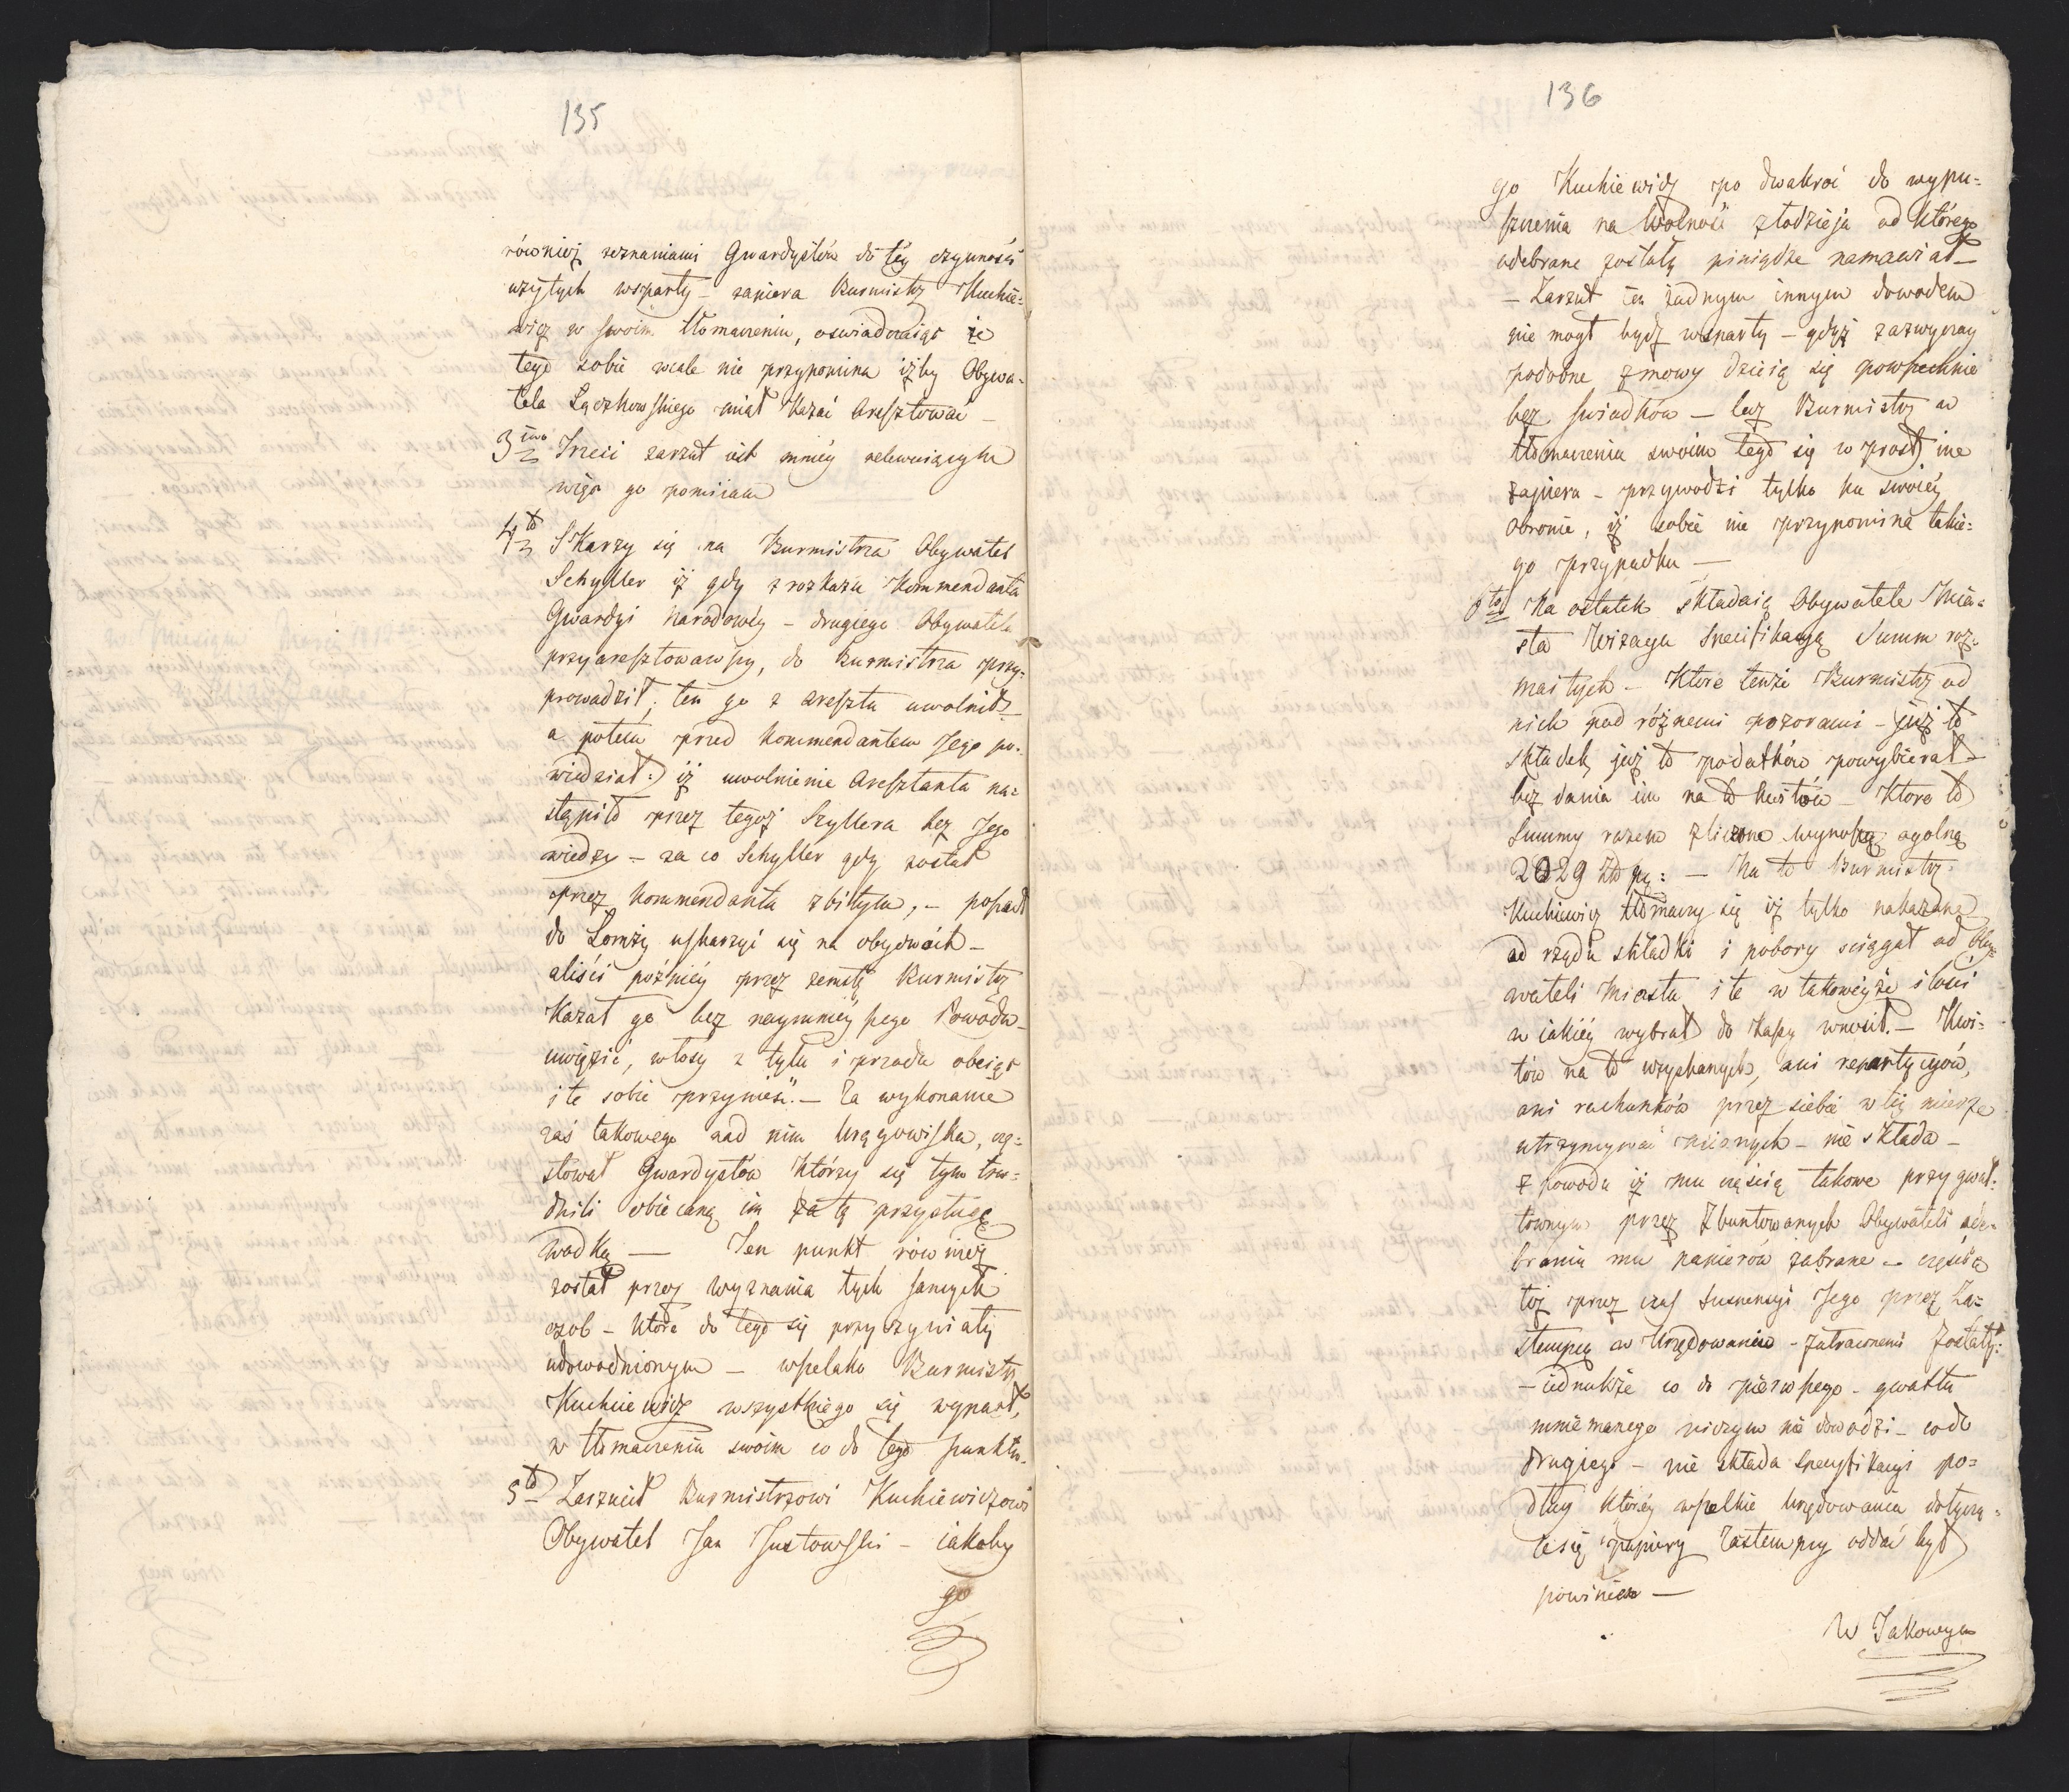 135
równiez zeznaniami Gwardystów do téy czynności
użytych wsparty – zapiera Burmistrz Kuchie=
wicz w swoim tłomaczeniu, oswiadczaiąc że
tego sobie wcale nie przypomina iżby Obywa=
tela Łączkowskiego miał kazać Aresztować –
3tio Trzeci zarzut iest mniéy relewuiącym
więc go pomiiam
4to Skarzy się na Burmistrza Obywatel
Schyller iż gdy z rozkazu Kommendanta
Gwardyi Narodowéy – drugiego Obywatela
przyaresztowawszy, do Burmistrza przy=
prowadził; ten go z aresztu uwolnił –
a potém przed Kommendantem Jego po=
wiedział: iż uwolnienie Aresztanta na=
stąpiło przez tegoż Szyllera bez Jego
wiedzy – za co Schyller gdy został
przez Kommendanta zbitym, – poszedł
do Łomży uskarzyć się na obydwóch –
aliści poźniéy przez zemstę Burmistrz
Kazał go bez naymnieyszego Powodu –
uwięzić, włosy z tyłu i przodu obciąć
i te sobie przynieść. – Za wykonanie
zaś takowego nad nim Urągowiska, czę=
stował Gwardystów którzy się tym tru=
dnili obiecaną im za tą przysługę
wodką — Ten punkt równiez
został przez wyznania tych samych
osob – które do tego się przyczyniały
udowodnionym – wszelako Burmistrz
Kuchiewicz wszystkiego się wyparł,
w tłomaczeniu swoim co do tego punktu.
5to Zarzucił Burmistrzowi Kuchiewiczowi
Obywatel Jan Justowski – iakoby
go
136
go Kuchiewicz po dwakroć do wypu=
szczenia na Wolność złodzieja od którego
odebrane zostały pieniądze namawiał –
– Zarzut ten żadnym innym dowodem
nie mogł bydź wsparty – gdyż zazwyczay
podobne zmowy dzieią się powszechnie
bez swiadków – lecz Burmistrz w
tłomaczeniu swoim tego się w prost nie
zapiera – przywodzi tylko ku swoiéy
obronie, iż sobie nie przypomina takie=
go przypadku —
6to Na ostatek składaią Obywatele Mia=
sta Wizayn Specifikacyą Summ roz=
maitych – które tenże Burmistrz od
nich pod różnemi pozorami – już to
składek, już to podatków powybierał –
bez dania im na to kwitów – które to
Summy razem zliczone wynoszą ogolną
2029 Złł pq: – Na to Burmistrz
Kuchiewicz tłomaczy się iż tylko nakazane
od rządu składki i pobory sciągał od Oby=
wateli Miasta i te w takowéyże ilości
w iakiéy wybrał do Kassy wnosił. – Kwi=
tów na to uzyskanych, ani repartycyów,
ani rachunków przez siebie w téy mierze
utrzymywać mianych – nie składa –
z powodu iż mu częścią takowe przy gwał=
townym przez Zbuntowanych Obywateli ode=
braniu mu papierów zabrane – częścią
téż przez czas Suspensyi Jego przez Za=
stempcę w Urzędowaniu – zatraconemi zostały:
– iednakże co do pierwszego – gwałtu
mniemanego niczym nie dowodzi – co do
drugiego – nie składa Specyfikacyi po=
dług któréy wszelkie Urzędowania dotyczą=
ce się papiery Zastempcy oddać był
powinien —
W Takowym